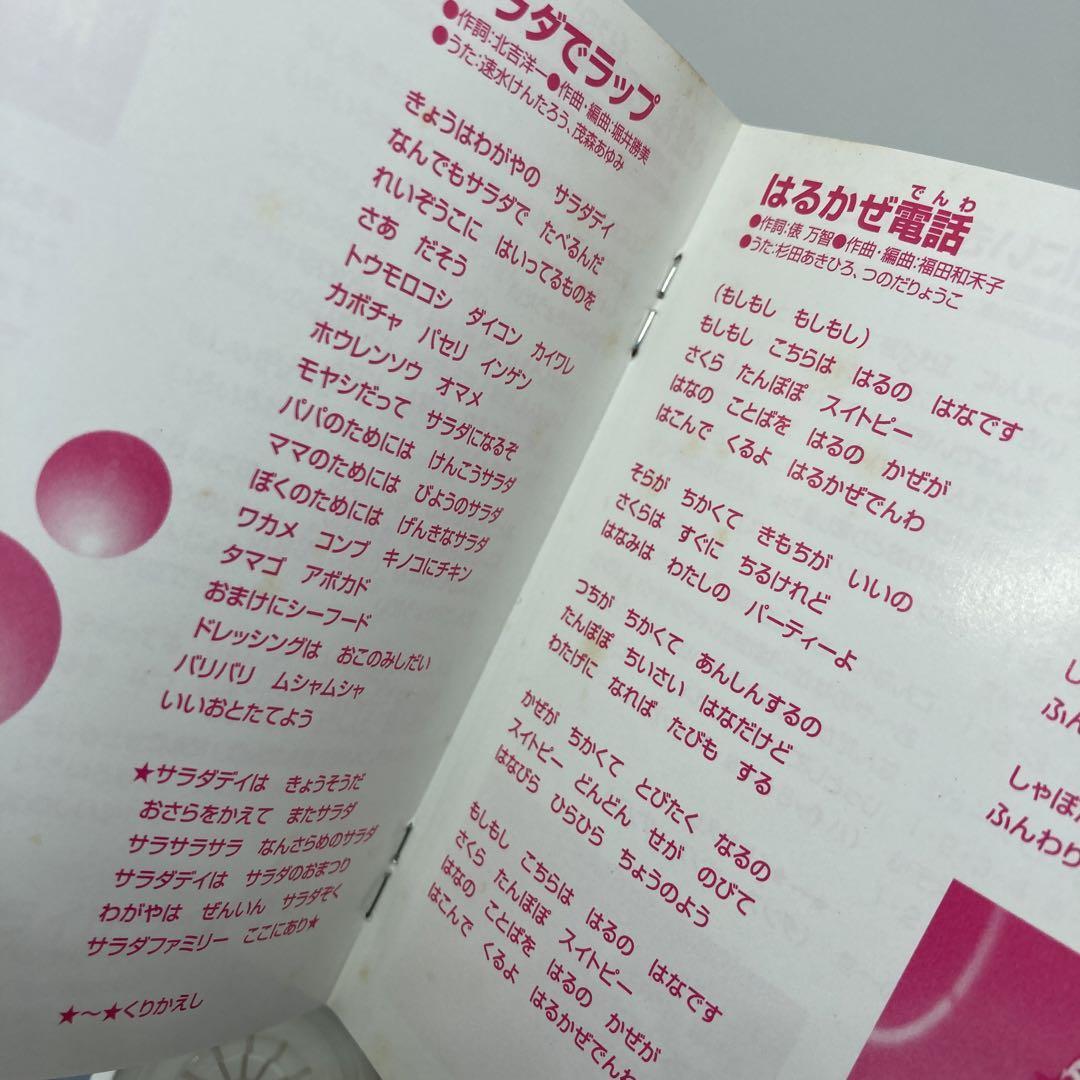 ラダでラップ
●作詞:北吉洋一●作曲・編曲:堀井勝美
●うた:速水けんたろう、茂森あゆみ
きょうはわがやの サラダデイ
なんでもサラダで たべるんだ
れいぞうこに はいってるものを
さあ だそう
トウモロコシ ダイコン カイワレ
カボチャ パセリ インゲン
ホウレンソウ オマメ
モヤシだって サラダになるぞ
パパのためには けんこうサラダ
ママのためには びようのサラダ
ぼくのためには げんきなサラダ
ワカメ コンブ キノコにチキン
タマゴ アボカド
おまけにシーフード
ドレッシングは おこのみしだい
バリバリ ムシャムシャ
いいおとたてよう
★サラダデイは きょうそうだ
おさらをかえて またサラダ
サラサラサラ なんさらめのサラダ
サラダデイは サラダのおまつり
わがやは ぜんいん サラダぞく
サラダファミリー ここにあり★
★〜★くりかえし
でんわ
はるかぜ電話
●作詞:俵 万智●作曲・編曲:福田和禾子
●うた:杉田あきひろ、つのだりょうこ
(もしもし もしもし)
もしもし こちらは はるの はなです
さくら たんぽぽ スイトピー
はなの ことばを はるの かぜが
はこんで くるよ はるかぜでんわ
そらが ちかくて きもちが いいの
さくらは すぐに ちるけれど
はなみは わたしの パーティーよ
つちが ちかくて あんしんするの
たんぽぽ ちいさい はなだけど
わたげに なれば たびも する
かぜが ちかくて とびたく なるの
スイトピー どんどん せが のびて
はなびら ひらひら ちょうのよう
もしもし こちらは はるの はなです
さくら たんぽぽ スイトピー
はなの ことばを はるの かぜが
はこんで くるよ はるかぜでんわ
し
ふん
しゃぼん
ふんわり